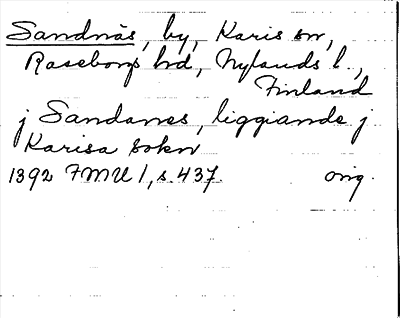 Sandnäs, by, Karis sn,
Raseborgs hd, Nylands l.,
Finland
j Sandanes, liggiande j
Karisa sokn
1392 FMU 1, s. 437. orig.